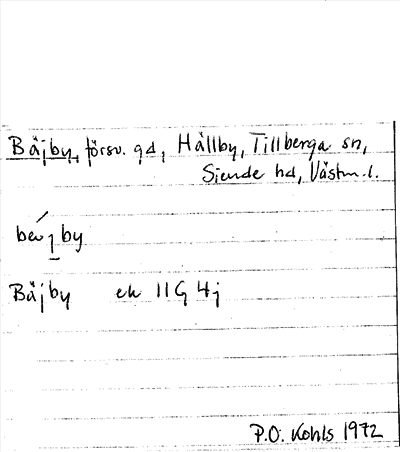 Bäjby, försv. gd, Hällby, Tillberga sn,
Siende hd, Västm.l.
Bäjby ek 11G 4j
P.O. Kohls 1972